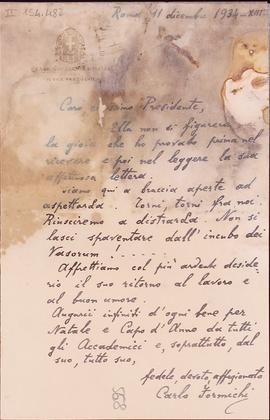 II 154.482
Roma, 11 dicembre 1934-XIII
Caro Presidente,
Ella non si figurerà
la gioia che ho provato prima nel
ricevere e poi nel leggere la sua
affettuosa lettera.
Siamo qui a braccia aperte ad
aspettarda. Torni, torni fra noi.
Riusciremo a distrarda! Non si
lasci spaventare dall'incubo dei
Vasorum . . . . . .
Affrettiamo col più ardente deside-
rio il suo ritorno al lavoro e
al buon umore.
Augurii infiniti d'ogni bene per
Natale e Capo d'Anno da tutti
gli Accademici e, soprattutto, dal
suo, tutto suo,
fedele, devoto, affezionato
Carlo Formichi
568